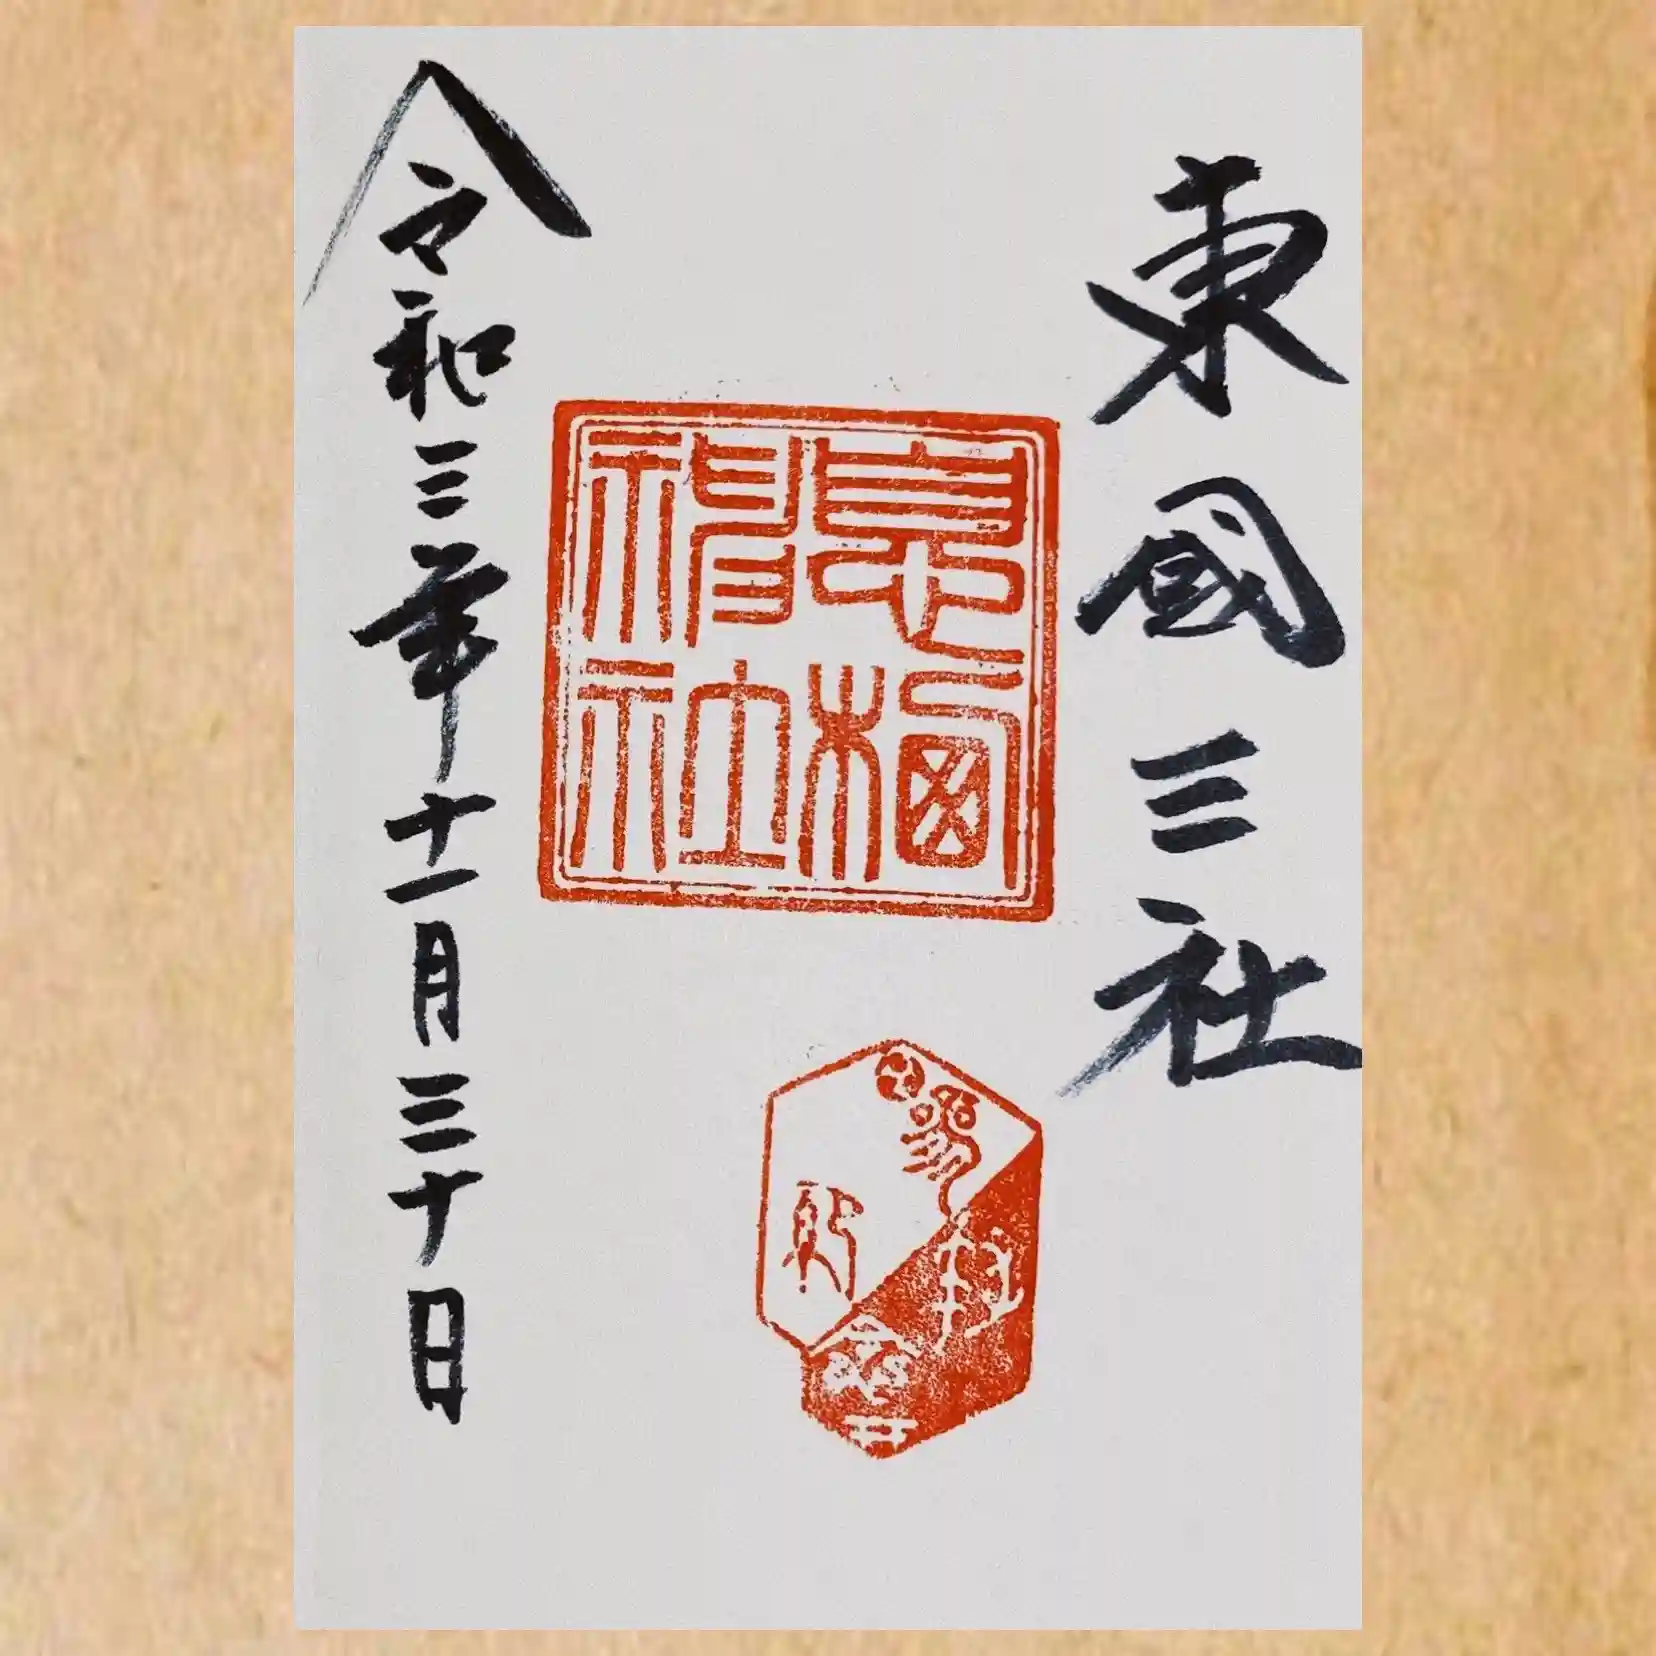 東國三社
息栖
神社
令和三年十一月三十日